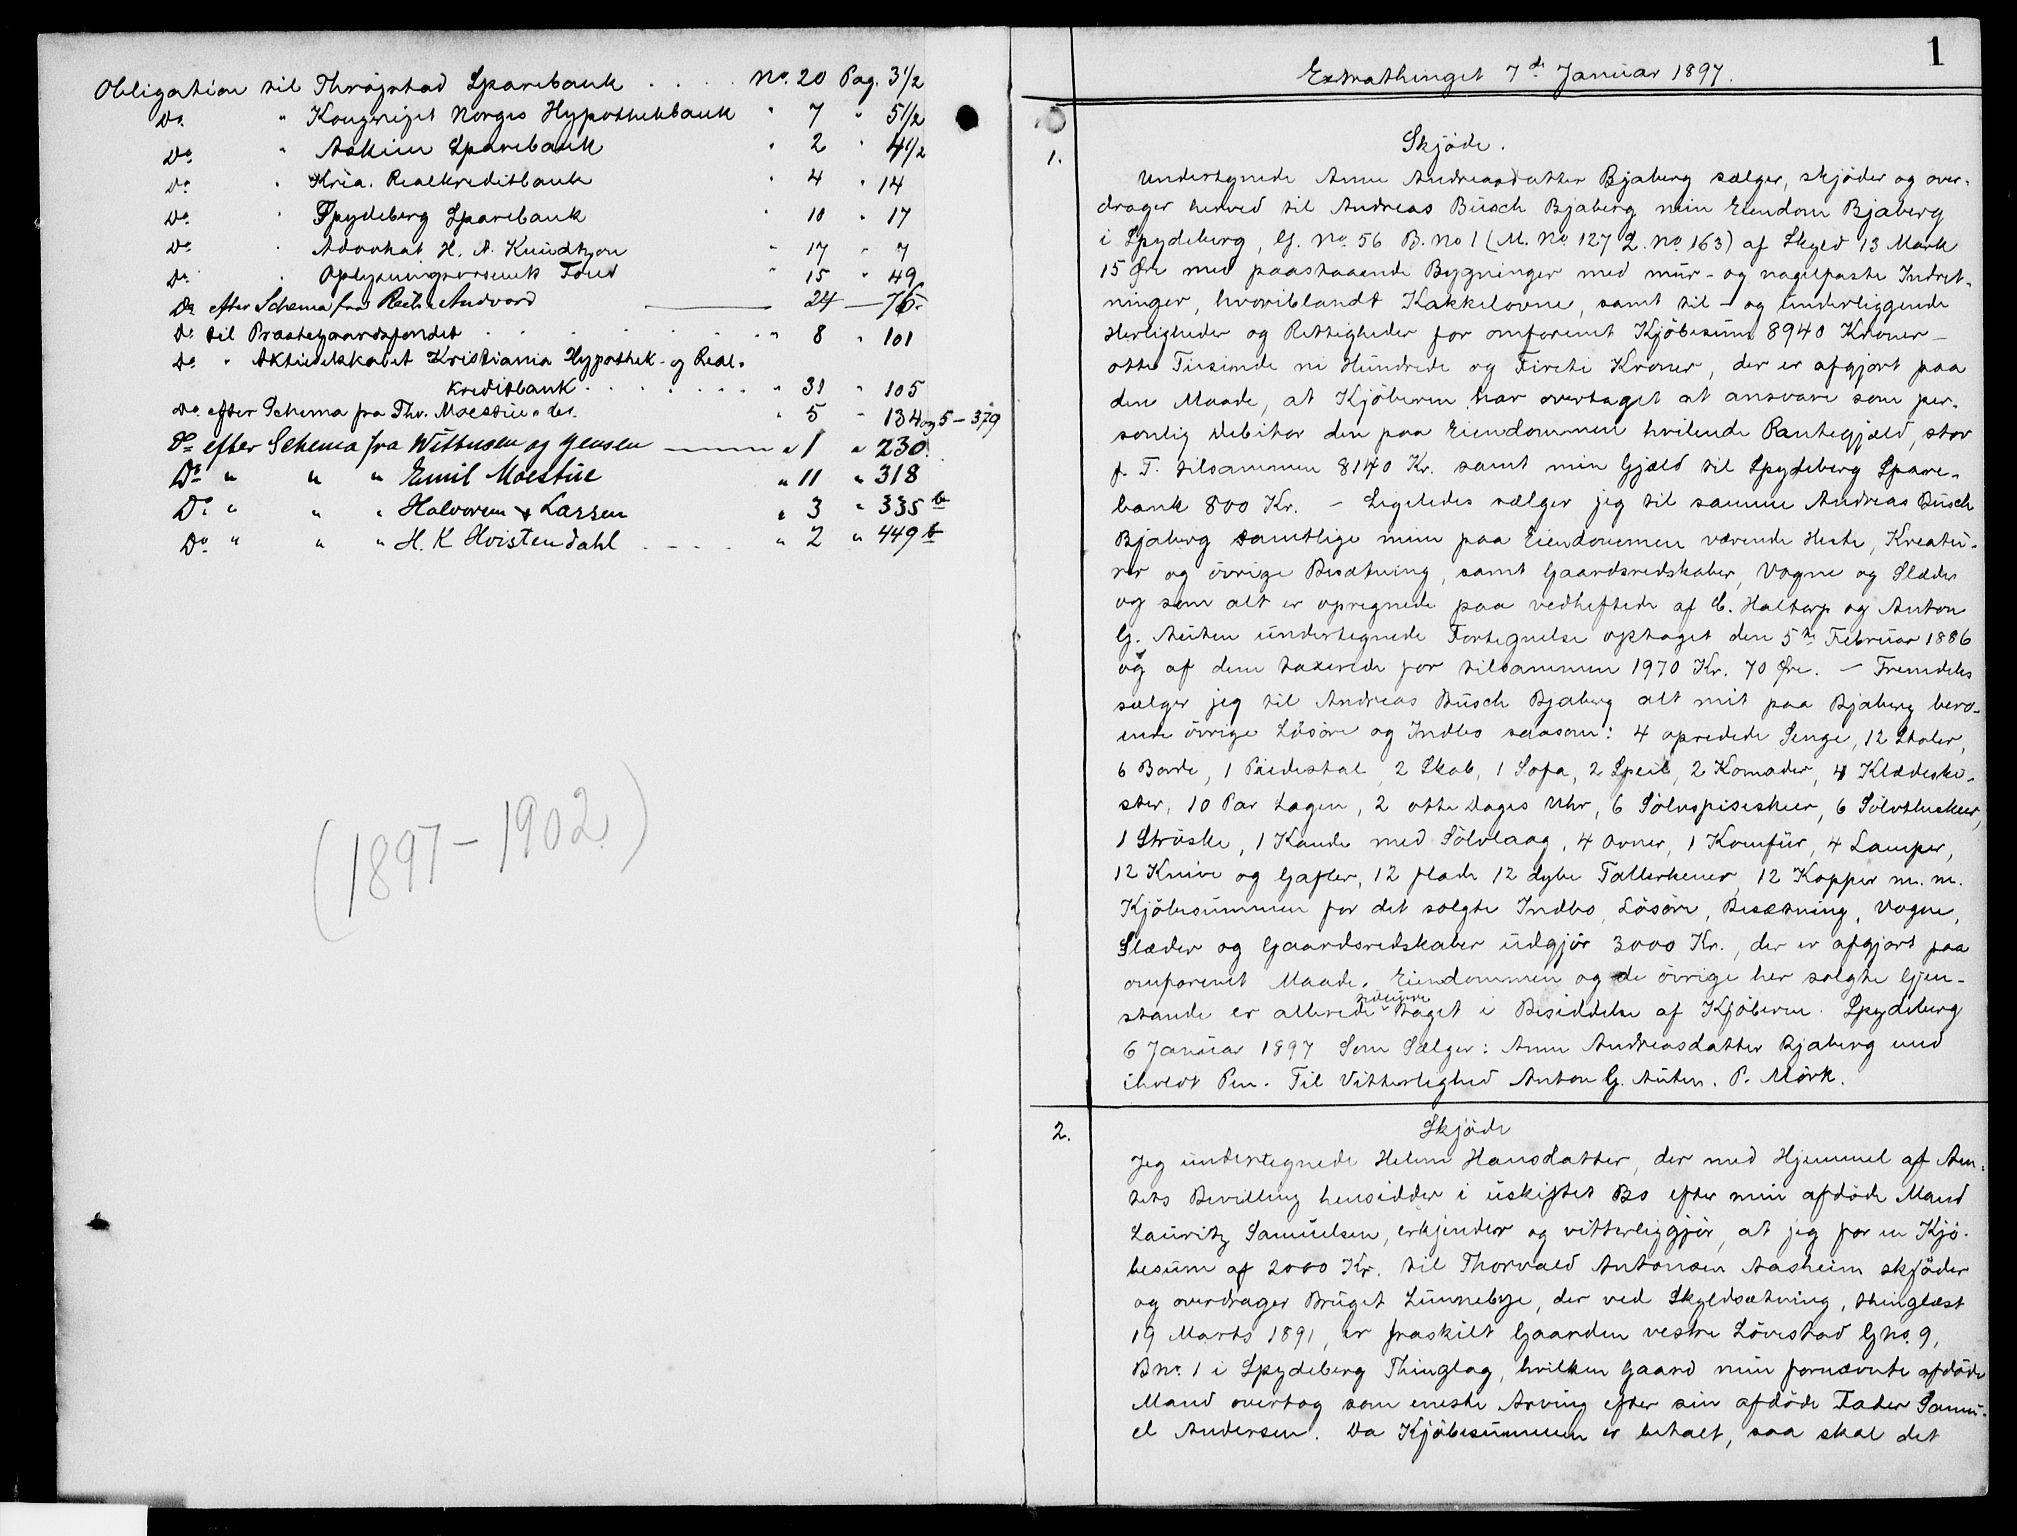 Obligation til Thrøgstad Sparebank . . . . No. 20 Pag. 3 1/2
Do. " Kongeriget Norges Hypothekbank " 7 " 5 1/2
Do " Askim Sparebank " 2 " 4 1/2
Do " Kria. Realkreditbank " 4 " 14
Do. " Spydeberg Sparebank " 10 " 17
Do " Advokat H. A. Knudtzon " 17 " 7
Do. " Oplysningsvæsenets Fond " 15 " 49
Do efter Schema fra Andvord — 24 — 76
Do til Præstegaardsfondet . . . . . . " 8 " 101
Do " Aktieselskabet Kristiania Hypothek- og Real-
kreditbank . . . . . . " 31 " 105
Do efter Schema fra Thv. Moestue " 5 " 134 og 5 — 379
Do efter Schema fra Wittusen og Jensen — " 1 " 230.
Do " " " Emil Moestue " 11 " 318
Do " " " Halvorsen & Larssen " 3 " 335 b
Do " " " H. K Hvistendahl . - - . " 2 " 449 b
(1897-1902)
1
Extrathinget 7de Januar 1897.
Skjøde.
1.
Undertegnede Anne Andreasdatter Bjaberg sælger, skjøder og over-
drager herved til Andreas Busch Bjaberg min Eiendom Bjaberg
i Spydeberg, G. No. 56 B. No 1 (M. No 127 L. No. 163) af Skyld 13 Mark
15 Øre med paastaaende Bygninger med mur- og nagelfaste Indret-
ninger, hvoriblandt Kakkelovne, samt til- og underliggende
Herligheder og Rettigheder for omforenet Kjøbesum 8940 Kroner -
otte Tusinde ni Hundrede og Firti Kroner, der er afgjort paa
den Maade, at Kjøberen har overtaget at ansvare som per-
sonlig Debitor den paa Eiendommen hvilende Pantegjæld, stor
p. T. tilsammen 8140 Kr. samt min Gjæld til Spydeberg Spare-
bank 800 Kr. - Ligeledes sælger jeg til samme Andreas Busch
Bjaberg samtlige mine paa Eiendommen værende Heste, Kreatu-
rer og övrige Besætning, samt Gaardsredskaber, Vogne og Slæder
og som alt er opregnede paa vedheftede af C. Haltorp og Anton
G. Auten undertegnede Fortegnelse optaget den 5te Februar 1886
og af dem taxerede for tilsammen 1970 Kr. 70 Øre. - Fremdeles
sælger jeg til Andreas Busch Bjaberg alt mit paa Bjaberg bero-
ende övrige Lösöre og Indbo saasom: 4 opredede Senge, 12 Stoler,
6 Borde, 1 Piedestal, 2 Skab, 1 Sofa, 2 Speil, 2 Komoder, 4 Klædeski-
ster, 10 Par Lagen, 2 otte Dages Uhr, 6 Sølvspiseskeer, 6 Sølvtheskeer,
1 Ströske, 1 Kande med Sölvlaag, 4 Ovner, 1 Komfur, 4 Lamper,
12 Knive og Gafler, 12 flade 12 dybe Tallerkener, 12 Kopper m. m.
Kjöbesummen for det solgte Indbo, Lösöre, Besætning, Vogne,
Slæder og Gaardsredskaber udgjör 3000 Kr., der er afgjort paa
omforenet Maade. Eiendommen og de övrige her solgte Gjen-
stande er allerede tidligere taget i Besiddelse af Kjöberen. Spydeberg
6 Januar 1897 Som Sælger: Anne Andreasdatter Bjaberg med
iholdt Pen. Til Vitterlighed Anton G. Auten. P. Mörk.
2.
Skjöde
Jeg undertegnede Helene Hansdatter, der med Hjemmel af Am-
tets Bevilling hensidder i uskiftet Bo efter min afdöde Mand
Lauritz Samuelsen, erkjender og vitterliggjör, at jeg for en Kjö-
besum af 2000 Kr. til Thorvald Antonsen Aasheim skjöder
og overdrager Bruget Lunnebye, der ved Skyldsætning, thinglæst
19 Marts 1891, er fraskilt Gaarden vestre Lövestad Gno. 9,
Bno. 1 i Spydeberg Thinglag, hvilken Gaard min fornævnte afdöde
Mand overtog som eneste Arving efter sin afdöde Fader Samu-
el Andersen. Da Kjöbesummen er betalt, saa skal det